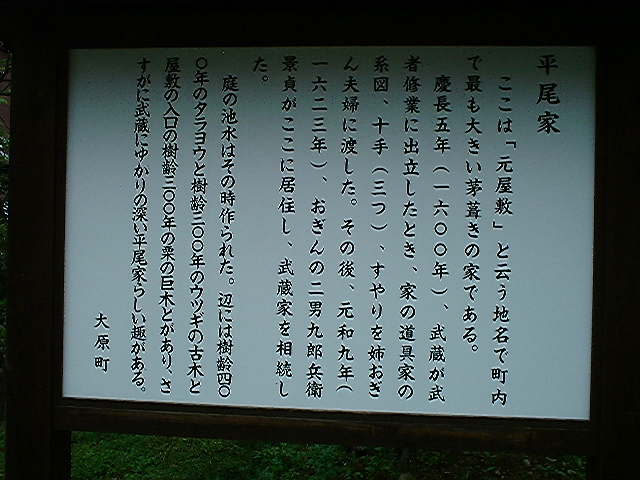 平尾家
ここは「元屋敷」と云う地名で町内
で最も大きい茅葺きの家である。
慶長五年(一六〇〇年)、武蔵が武
者修業に出立したとき、家の道具家の
系図、十手(三つ)、すやりを姉おぎ
ん夫婦に渡した。その後、元和九年(
一六二三年)、おぎんの二男九郎兵衛
景貞がここに居住し、武蔵家を相続し
た。
庭の池水はその時作られた。辺には樹齢四〇
〇年のタラヨウと樹齢三〇〇年のウツギの古木と
屋敷の入口の樹齢三〇〇年の栗の巨木とがあり、さ
すがに武蔵にゆかりの深い平尾家らしい趣がある。
大原町